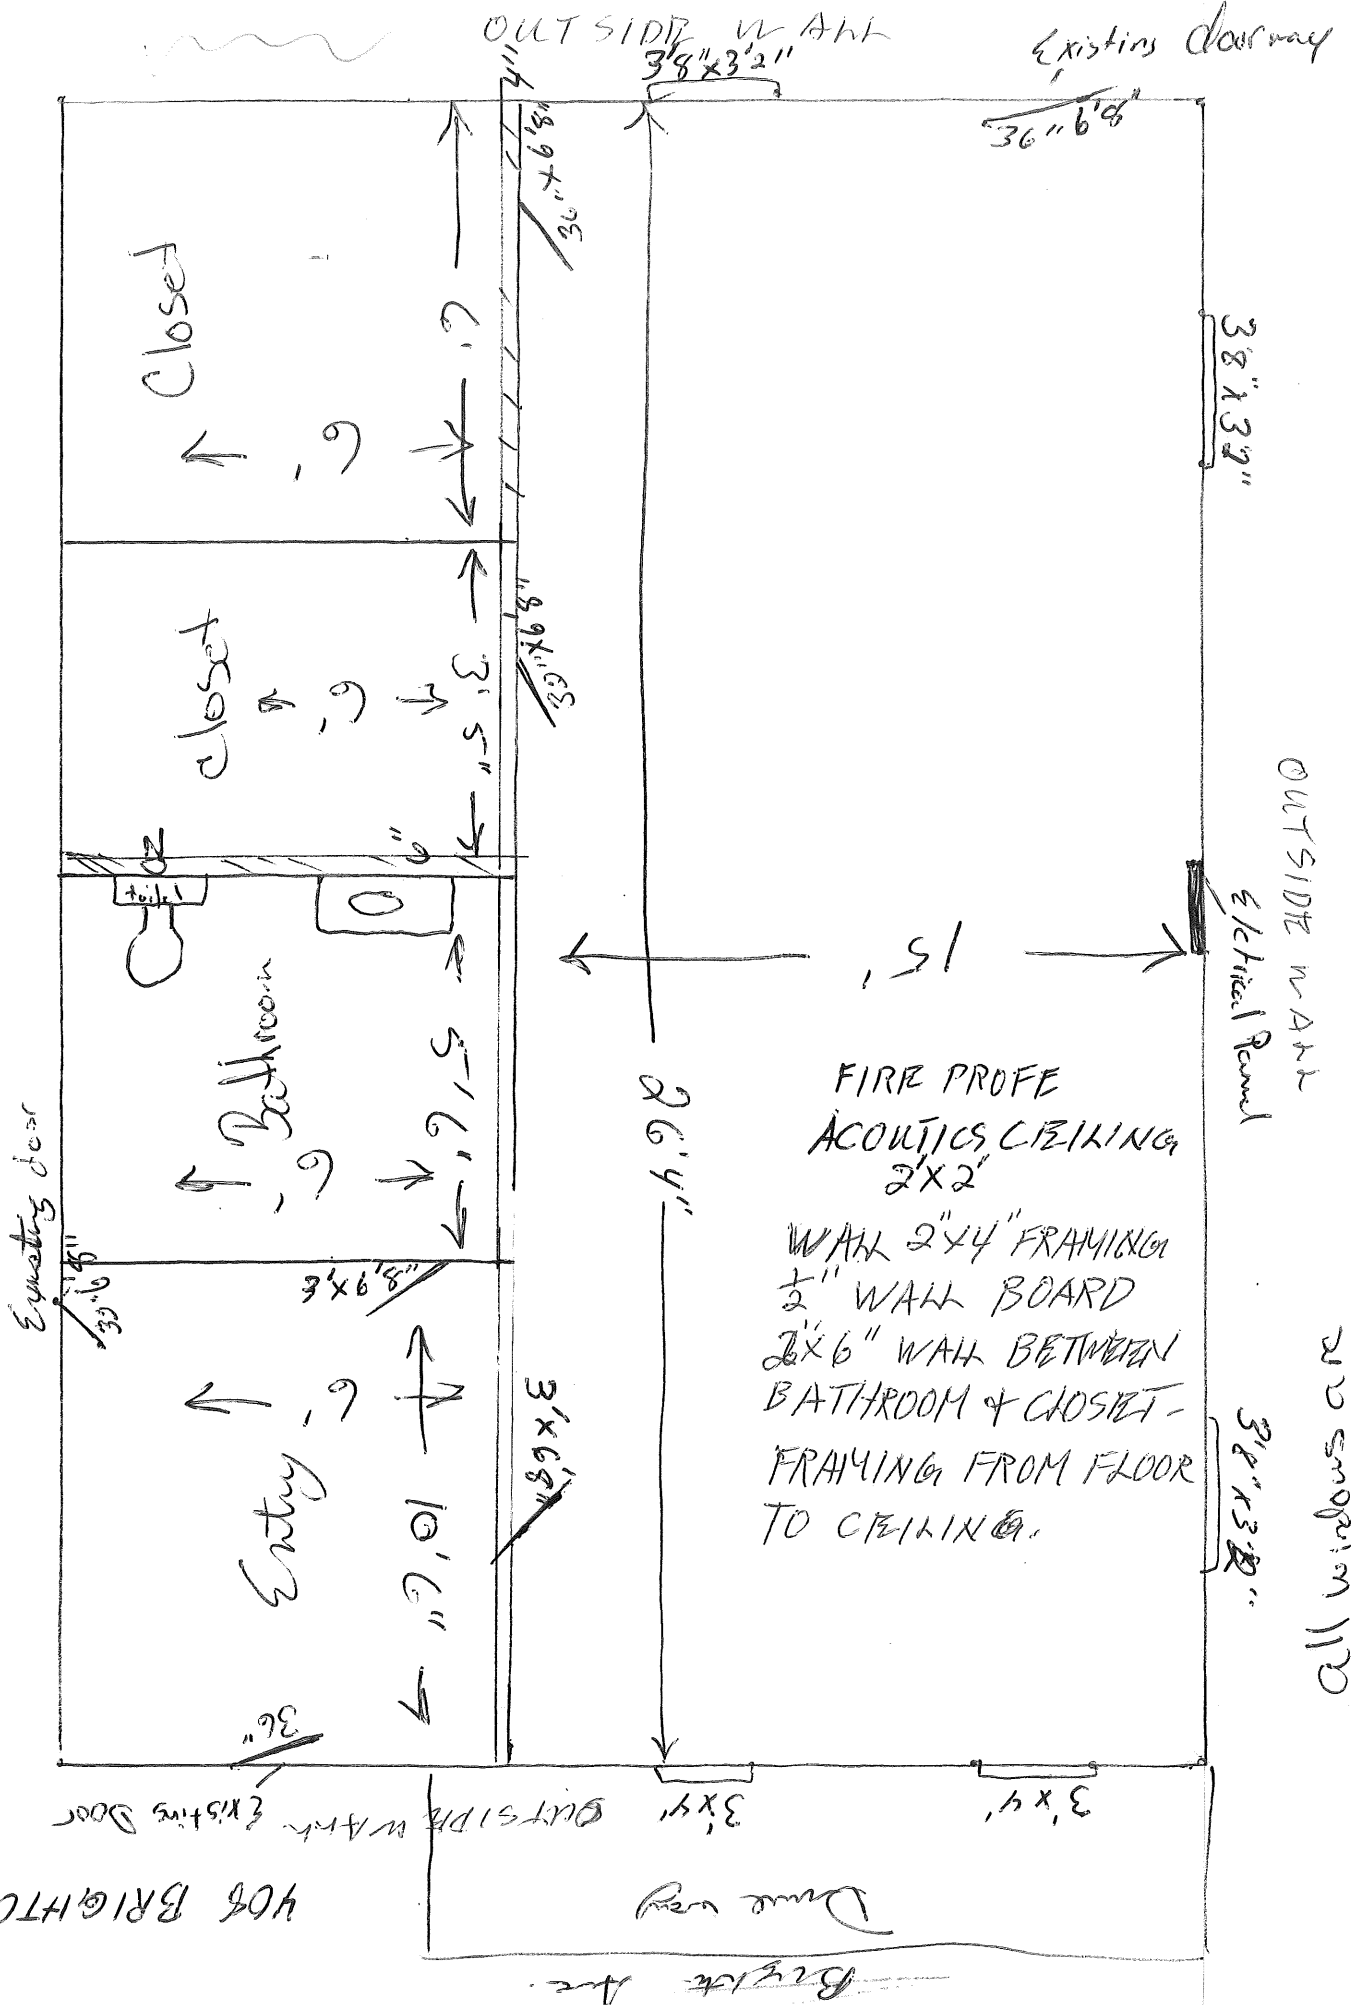 OUTSIDE WALL
3'8"x3'2"
Existing doorway
36" 6'8"
4"
36"x6'8"
Closet
7'
6'
3'8"x3'2"
closet
6'
3'5"
36"x6'8"
OUTSIDE WALL
Elctrical Pannel
6"
toilet
Bathroom
6'
5'6"
15'
26'4"
FIRE PROFE
ACOUTICS CEILING
2'X2'
WALL 2"X4" FRAMING
1/2" WALL BOARD
2"X6" WALL BETWEEN
BATHROOM & CLOSET-
FRAMING FROM FLOOR
TO CEILING.
Existing door
36" 6'8"
3'x6'8"
Entry
6'
10'6"
3'x6'8"
3'8"x3'2"
all windows
36"
Existing Door
OUTSIDE WALL
3'x4'
3'x4'
408 BRIGHTO
Drive way
Ave.